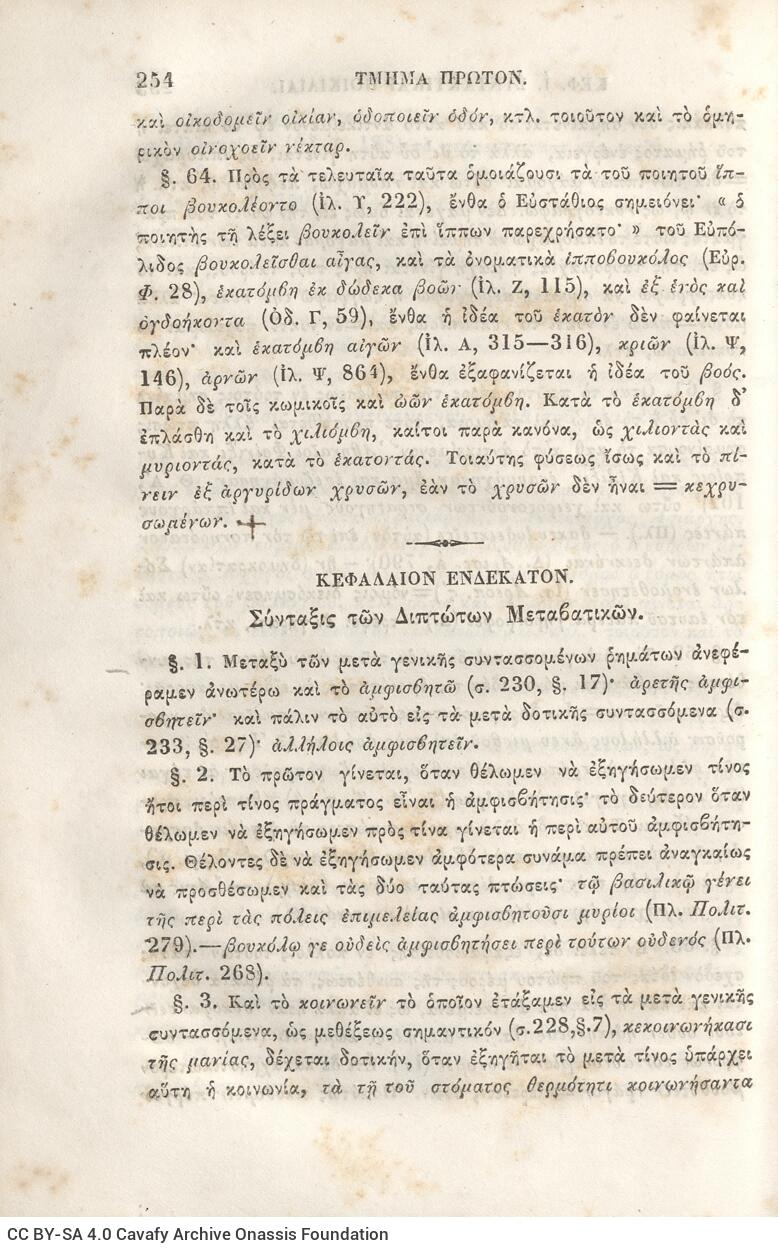 254 ΤΜΗΜΑ ΠΡΩΤΟΝ.
καὶ οἰκοδομεῖν οἰκίαν, ὁδοποιεῖν ὁδόν, κτλ. τοιοῦτον καὶ τὸ ὁμη-
ρικὸν οἰνοχοεῖν νέκταρ.
§. 64. Πρὸς τὰ τελευταῖα ταῦτα ὁμοιάζουσι τὰ τοῦ ποιητοῦ ἵπ-
ποι βουκολέοντο (Ἰλ. Υ, 222), ἔνθα ὁ Εὐστάθιος σημειόνει· « ὁ
ποιητὴς τῇ λέξει βουκολεῖν ἐπὶ ἵππων παρεχρήσατο· » τοῦ Εὐπό-
λιδος βουκολεῖσθαι αἶγας, καὶ τὰ ὀνοματικὰ ἱπποβουκόλος (Εὐρ.
Φ. 28), ἑκατόμβη ἐκ δώδεκα βοῶν (Ἰλ. Ζ, 115), καὶ ἐξ ἑνὸς καὶ
ὀγδοήκοντα (Ὀδ. Γ, 59), ἔνθα ἡ ἰδέα τοῦ ἑκατὸν δὲν φαίνεται
πλέον· καὶ ἑκατόμβη αἰγῶν (Ἰλ. Α, 315—316), κριῶν (Ἰλ. Ψ,
146), ἀρνῶν (Ἰλ. Ψ, 864), ἔνθα ἐξαφανίζεται ἡ ἰδέα τοῦ βοός.
Παρὰ δὲ τοῖς κωμικοῖς καὶ ὠῶν ἑκατόμβη. Κατὰ τὸ ἑκατόμβη δ'
ἐπλάσθη καὶ τὸ χιλιόμβη, καίτοι παρὰ κανόνα, ὡς χιλιοντὰς καὶ
μυριοντάς, κατὰ τὸ ἑκατοντάς. Τοιαύτης φύσεως ἴσως καὶ τὸ πί-
νειν ἐξ ἀργυρίδων χρυσῶν, ἐὰν τὸ χρυσῶν δὲν ἦναι = κεχρυ-
σωμένων. +
ΚΕΦΑΛΑΙΟΝ ΕΝΔΕΚΑΤΟΝ.
Σύνταξις τῶν Διπτώτων Μεταβατικῶν.
§. 1. Μεταξὺ τῶν μετὰ γενικῆς συντασσομένων ῥημάτων ἀνεφέ-
ραμεν ἀνωτέρω καὶ τὸ ἀμφισβητῶ (σ. 230, §. 17)· ἀρετῆς ἀμφι-
σβητεῖν· καὶ πάλιν τὸ αὐτὸ εἰς τὰ μετὰ δοτικῆς συντασσόμενα (σ.
233, §. 27)· ἀλλήλοις ἀμφισβητεῖν.
§. 2. Τὸ πρῶτον γίνεται, ὅταν θέλωμεν νὰ ἐξηγήσωμεν τίνος
ἤτοι περὶ τίνος πράγματος εἶναι ἡ ἀμφισβήτησις· τὸ δεύτερον ὅταν
θέλωμεν νὰ ἐξηγήσωμεν πρὸς τίνα γίνεται ἡ περὶ αὐτοῦ ἀμφισβήτη-
σις. Θέλοντες δὲ νὰ ἐξηγήσωμεν ἀμφότερα συνάμα πρέπει ἀναγκαίως
νὰ προσθέσωμεν καὶ τὰς δύο ταύτας πτώσεις· τῷ βασιλικῷ γένει
τῆς περὶ τὰς πόλεις ἐπιμελείας ἀμφισβητοῦσι μυρίοι (Πλ. Πολιτ.
279).—βουκόλῳ γε οὐδεὶς ἀμφισβητήσει περὶ τούτων οὐδενός (Πλ.
Πολιτ. 268).
§. 3. Καὶ τὸ κοινωνεῖν τὸ ὁποῖον ἐτάξαμεν εἰς τὰ μετὰ γενικῆς
συντασσόμενα, ὡς μεθέξεως σημαντικόν (σ.228,§.7), κεκοινωνήκασι
τῆς μανίας, δέχεται δοτικήν, ὅταν ἐξηγῆται τὸ μετὰ τίνος ὑπάρχει
αὕτη ἡ κοινωνία, τὰ τῇ τοῦ στόματος θερμότητι κοινωνήσαντα
CC BY-SA 4.0 Cavafy Archive Onassis Foundation